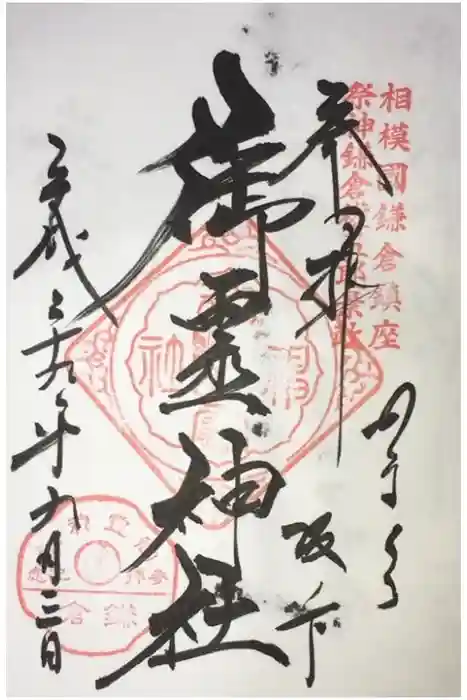 相模國鎌倉鎮座
祭神鎌倉權五郎景政
奉拝
かまくら
坂ノ下
御霊神社
平成二十九年九月三日